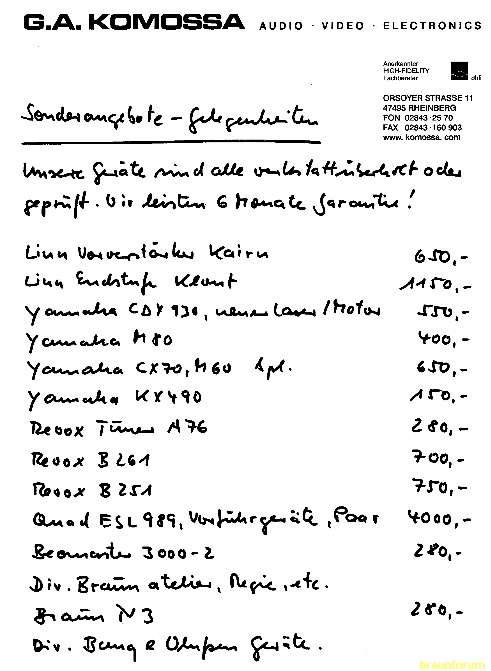 G.A. KOMOSSA AUDIO · VIDEO · ELECTRONICS
Anerkannter
HIGH-FIDELITY
Fachberater dhfi
ORSOYER STRASSE 11
47495 RHEINBERG
FON 02843 · 25 70
FAX 02843 · 160 903
www. komossa. com
Sonderangebote - Gelegenheiten
Unsere Geräte sind alle werkstattüberholt oder
geprüft. Wir leisten 6 Monate Garantie!
Linn Vorverstärker Kairn 650,-
Linn Endstufe Klout 1150,-
Yamaha CDX 930, neuer Laser/Motor 550,-
Yamaha M80 400,-
Yamaha CX70, M60 kpl. 650,-
Yamaha KX490 150,-
Revox Tuner A76 280,-
Revox B261 700,-
Revox B251 750,-
Quad ESL 989, Vorführgeräte, Paar 4000,-
Beomaster 3000-2 280,-
Div. Braun atelier, Regie, etc.
Braun N3 280,-
Div. Bang & Olufsen Geräte.
braunforum